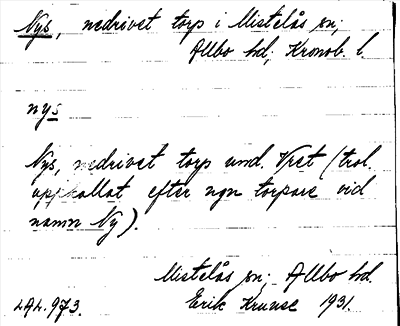 Nys, nedrivet torp i Mistelås sn;
Allbo hd, Kronob. l.
nys
Nys, nedrivet torp und. Vret (trol.
uppkallat efter ngn torpare vid
namn Ny).
Mistelås sn; Allbo hd.
LAL. 973. Erik Kruuse 1931.